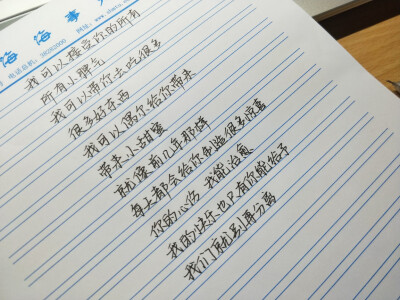 海事
电话总机:
我可以接受你的所有
所有小脾气
我可以带你去吃很多
很多好东西
我可以偶尔给你带来
带来小甜蜜
就像前几年那样
每天都会给你制造很多惊喜
你的心伤 我能治愈
我的快乐也只有你能给予
我们就别再分离